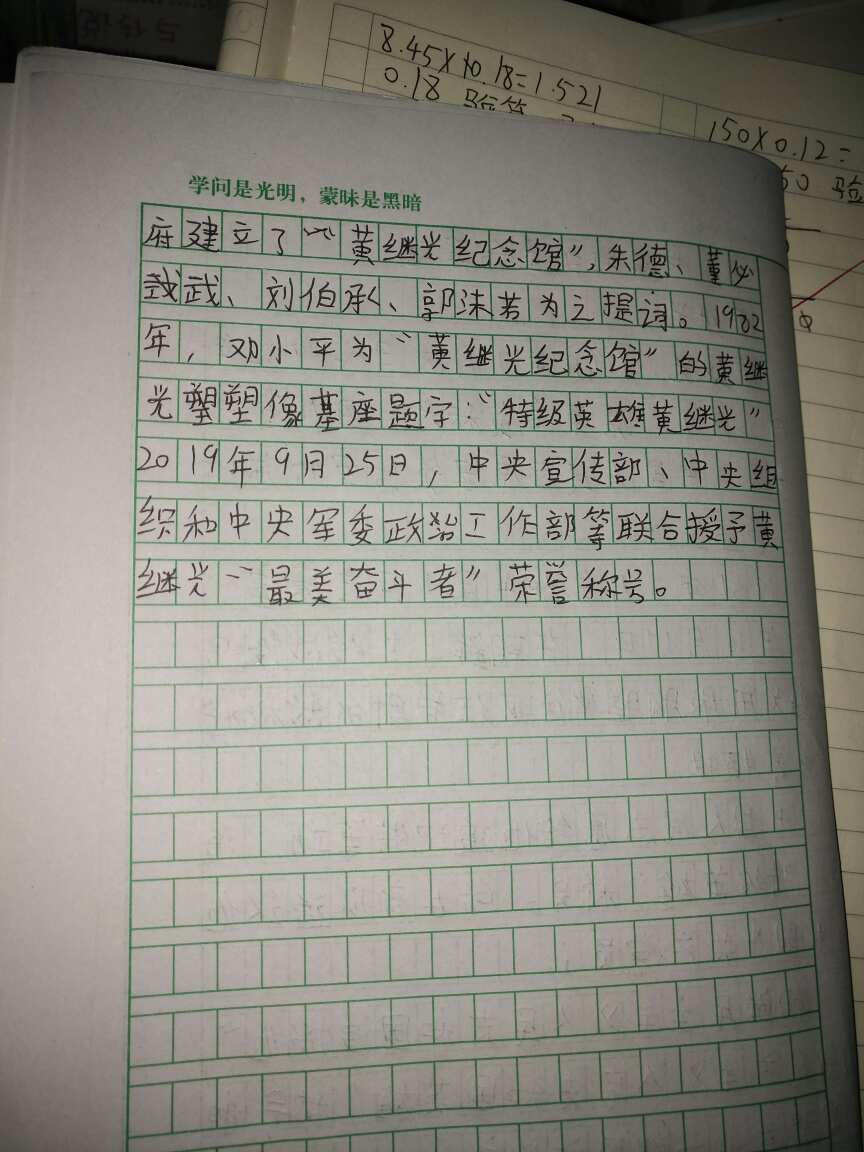 与传说
8.45×10.18=1.521
0.18 验算
150×0.12=
50 验
学问是光明，蒙昧是黑暗
府建立了“黄继光纪念馆”，朱德、董必
武、刘伯承、郭沫若为之提词。1982
年，邓小平为“黄继光纪念馆”的黄继
光塑塑像基座题字：“特级英雄黄继光”
2019年9月25日，中央宣传部、中央组
织和中央军委政治工作部等联合授予黄
继光“最美奋斗者”荣誉称号。